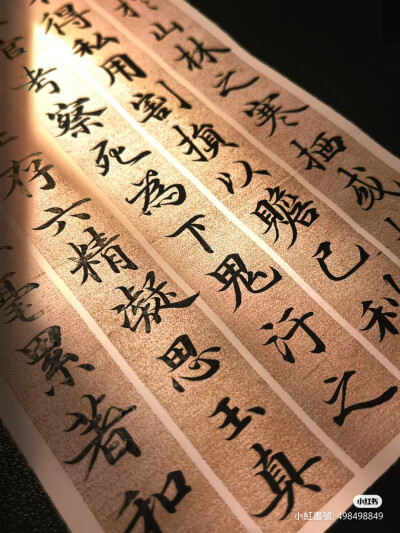 山林之寒栖或
得私用割損以贍己利
考察死為下鬼汙之
存六精凝思玉真
毫累者和
小红书
小红書號: 498498849